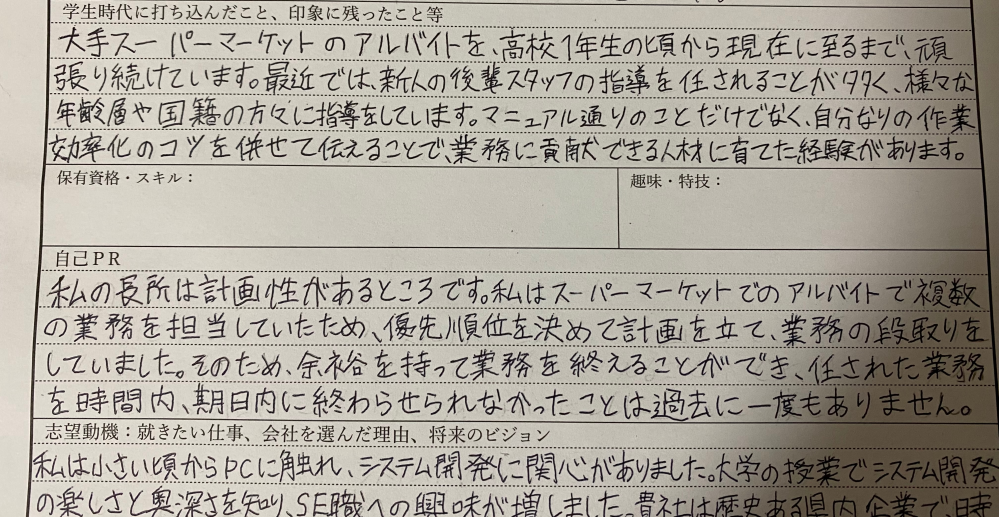 学生時代に打ち込んだこと、印象に残ったこと等
大手スーパーマーケットのアルバイトを、高校1年生の頃から現在に至るまで、頑
張り続けています。最近では、新人の後輩スタッフの指導を任されることが多く、様々な
年齢層や国籍の方々に指導をしています。マニュアル通りのことだけでなく、自分なりの作業
効率化のコツを併せて伝えることで、業務に貢献できる人材に育てた経験があります。
保有資格・スキル：
趣味・特技：
自己PR
私の長所は計画性があるところです。私はスーパーマーケットでのアルバイトで複数
の業務を担当していたため、優先順位を決めて計画を立て、業務の段取りを
していました。そのため、余裕を持って業務を終えることができ、任された業務
を時間内、期日内に終わらせられなかったことは過去に一度もありません。
志望動機：就きたい仕事、会社を選んだ理由、将来のビジョン
私は小さい頃からPCに触れ、システム開発に関心がありました。大学の授業でシステム開発
の楽しさと奥深さを知り、SE職への興味が増しました。貴社は歴史ある県内企業で、時